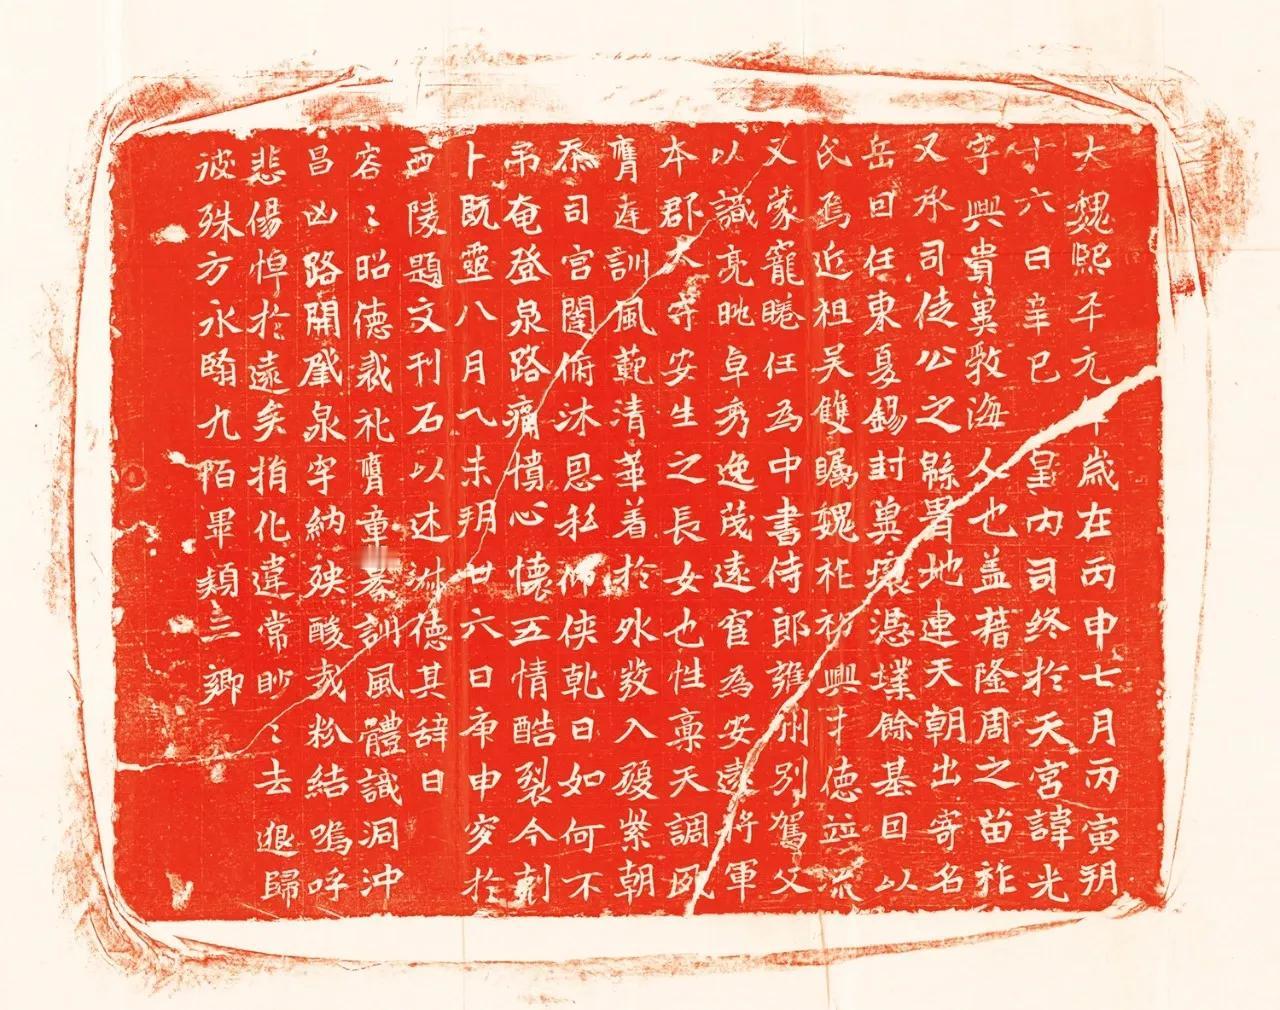 大魏熙平元年歲在丙申七月丙寅朔
十六日辛巳皇內司終於天宮諱光
字興貴勃海人也蓋藉隆周之苗祚
又承司徒公之緜胄地連天朝出寄名
岳回任東夏錫封冀壤憑墣餘基回以
氏焉近祖吳雙矚魏祚初興才德竝流
父蒙寵睠任為中書侍郎雍州別駕父
以識亮眺卓秀逸茂遠官為安遠將軍
本郡太守安生之長女也性稟天調風
膺連訓風範清華着於外教入殿紫朝
忝司宮闈俯沐恩私仰俠乾日如何不
弔奄登泉路痛憤心懷五情酷裂今剋
卜既靈八月乀未朔廿六日庚申窆於
西陵題文刊石以述德其辞曰
容〻昭德裁礼膺童訓風體識洞沖
昌凶路開肇泉穸納殃酸哉粉結嗚呼
悲傷悼於遠矣捐化違常眇〻去退歸
彼殊方永翳九陌畢類三鄉